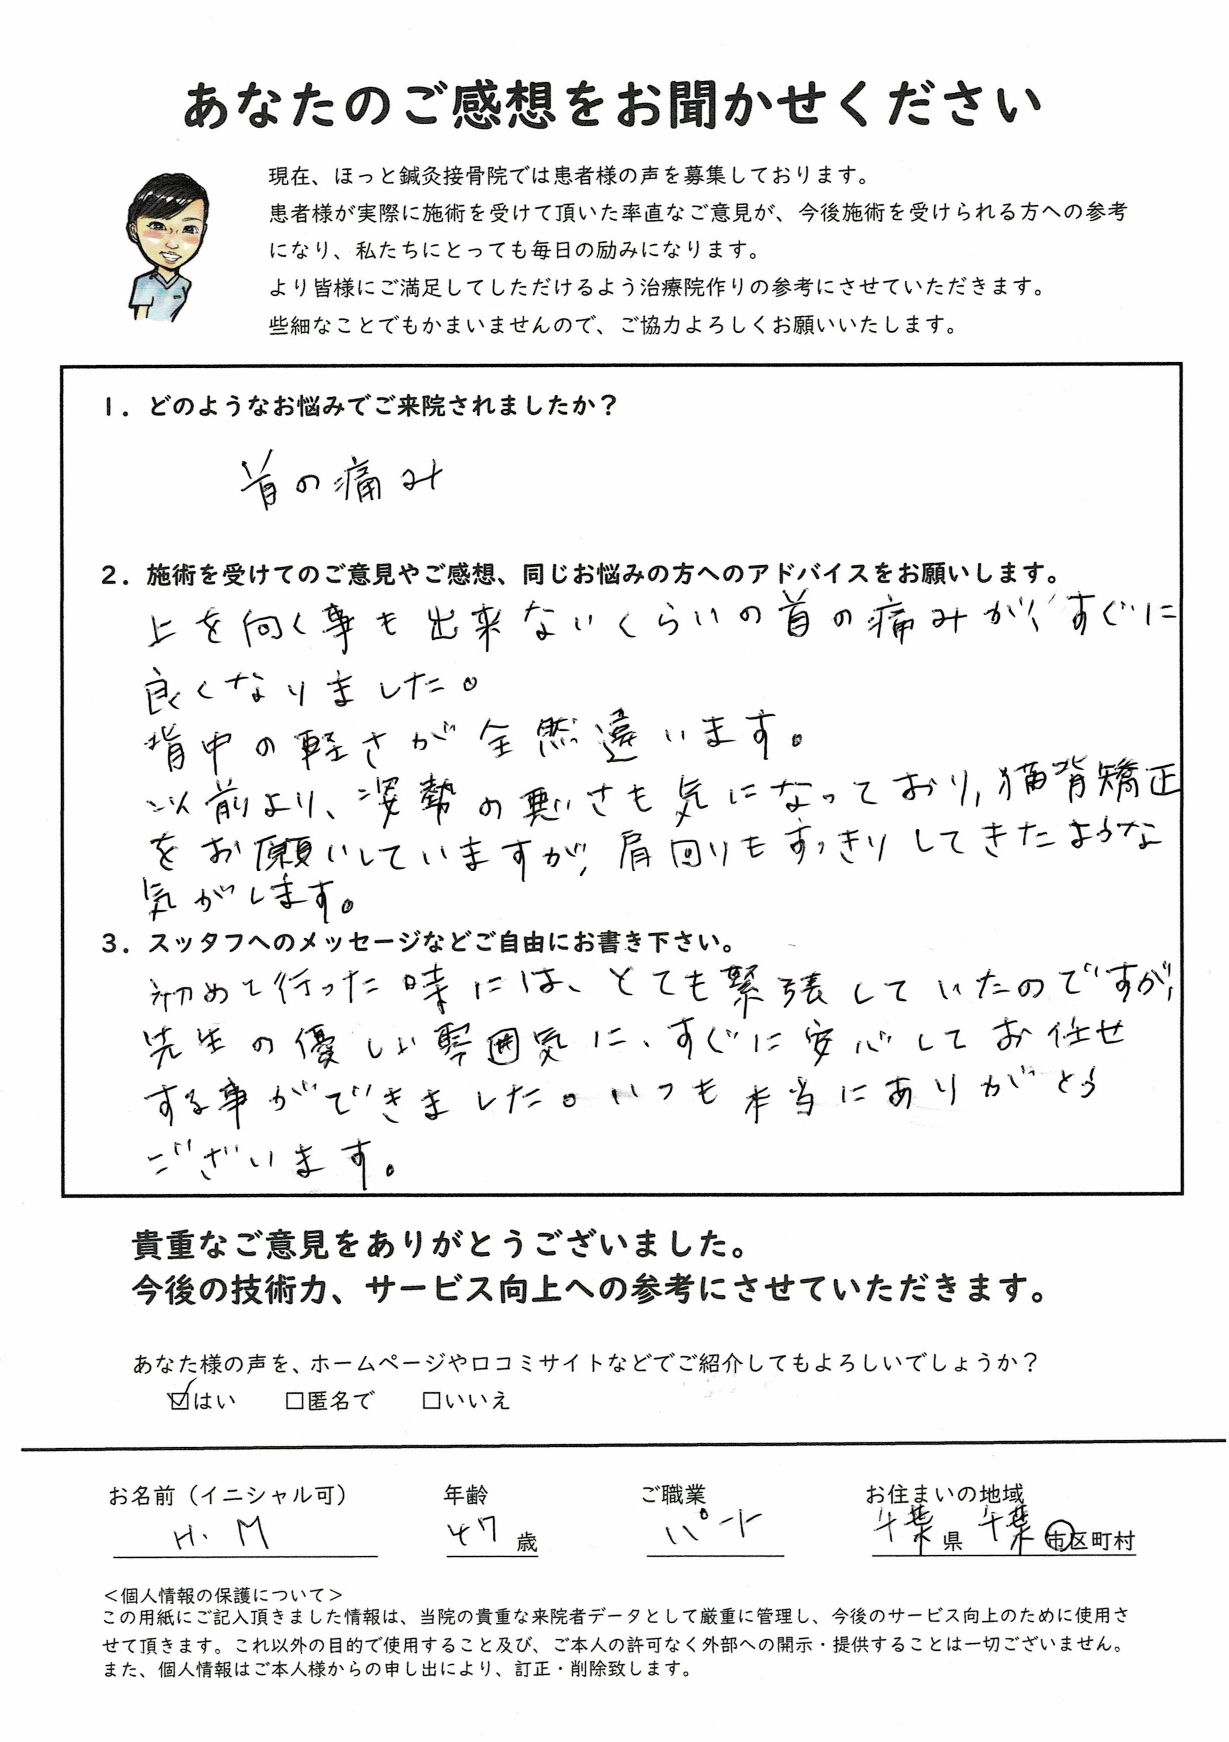 あなたのご感想をお聞かせください
現在、ほっと鍼灸接骨院では患者様の声を募集しております。
患者様が実際に施術を受けて頂いた率直なご意見が、今後施術を受けられる方への参考
になり、私たちにとっても毎日の励みになります。
より皆様にご満足してしただけるよう治療院作りの参考にさせていただきます。
些細なことでもかまいませんので、ご協力よろしくお願いいたします。
1．どのようなお悩みでご来院されましたか？
首の痛み
2．施術を受けてのご意見やご感想、同じお悩みの方へのアドバイスをお願いします。
上を向く事も出来ないくらいの首の痛みが、すぐに
良くなりました。
背中の軽さが全然違います。
以前より、姿勢の悪いさも気になっており、猫背矯正
をお願いしていますが、肩回りもすっきりしてきたような
気がします。
3．スッタフへのメッセージなどご自由にお書き下さい。
初めて行った時には、とても緊張していたのですが、
先生の優しい雰囲気に、すぐに安心してお任せ
する事ができました。いつも本当にありがとう
ございます。
貴重なご意見をありがとうございました。
今後の技術力、サービス向上への参考にさせていただきます。
あなた様の声を、ホームページや口コミサイトなどでご紹介してもよろしいでしょうか？
☑はい　□匿名で　□いいえ
お名前（イニシャル可）　年齢　ご職業　お住まいの地域
H. M　47歳　パート　千葉県　千葉市区町村
＜個人情報の保護について＞
この用紙にご記入頂きました情報は、当院の貴重な来院者データとして厳重に管理し、今後のサービス向上のために使用さ
せて頂きます。これ以外の目的で使用すること及び、ご本人の許可なく外部への開示・提供することは一切ございません。
また、個人情報はご本人様からの申し出により、訂正・削除致します。